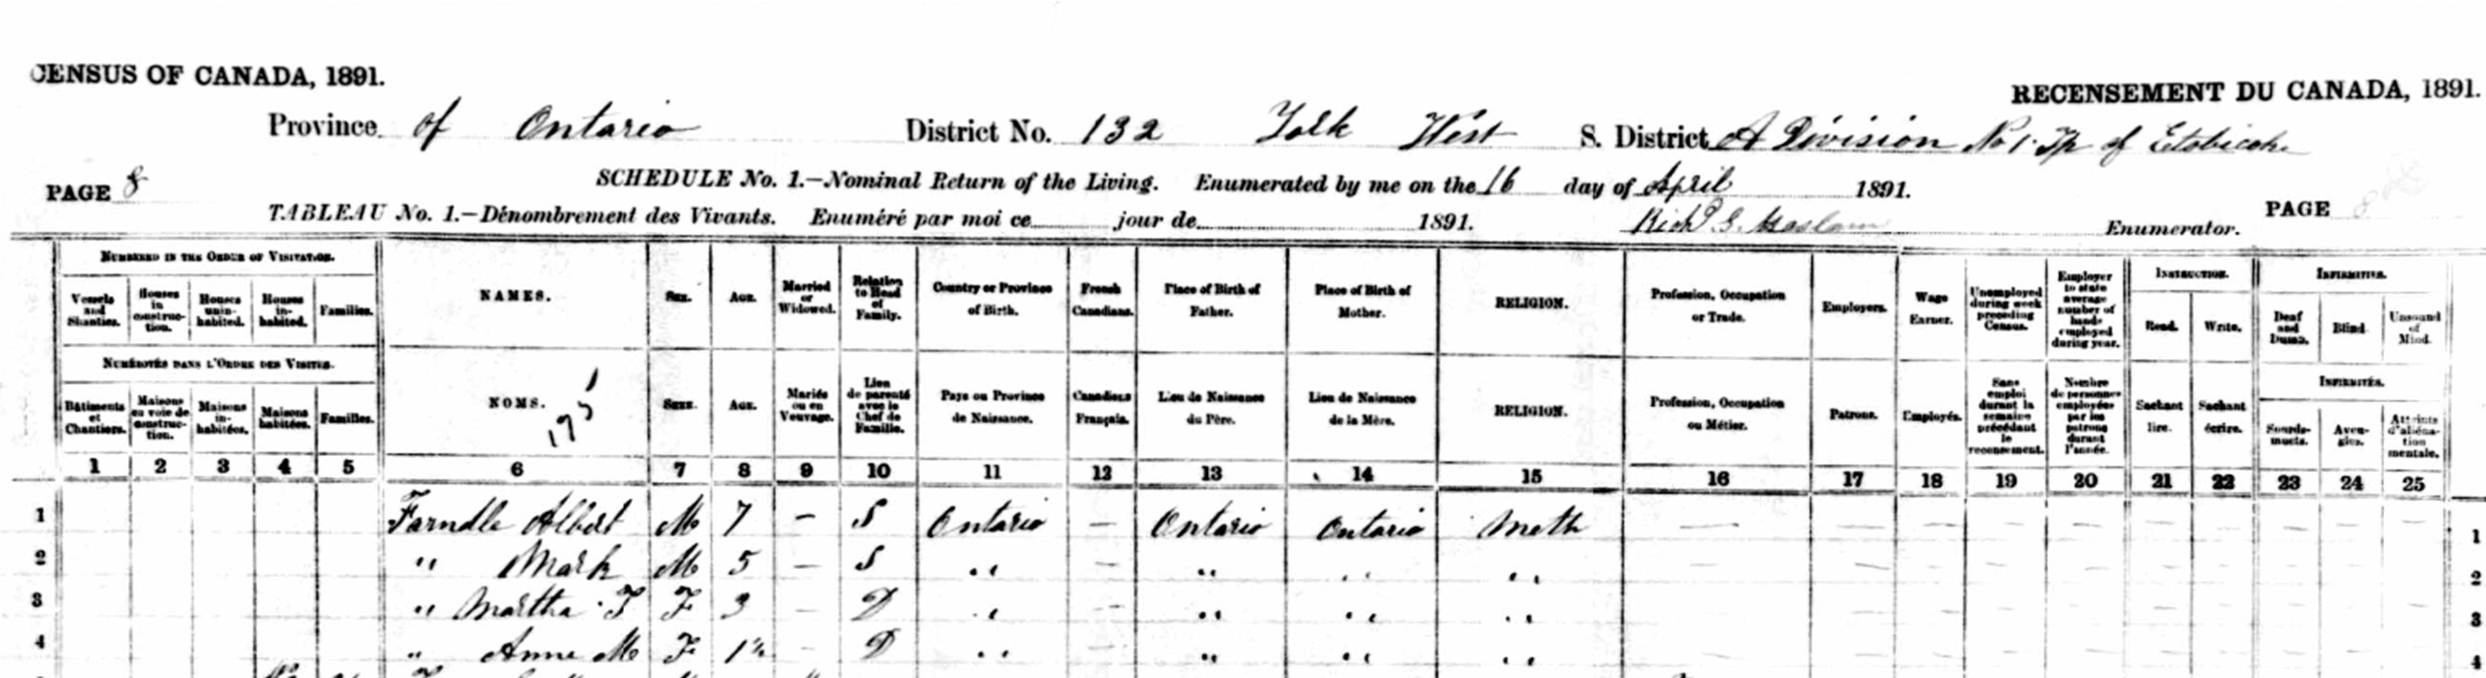 CENSUS OF CANADA, 1891.
RECENSEMENT DU CANADA, 1891.
Province of Ontario District No. 132 York West S. District A Division No 1. Tp of Etobicoke
PAGE 8 SCHEDULE No. 1.—Nominal Return of the Living. Enumerated by me on the 16 day of April 1891. PAGE 8
TABLEAU No. 1.—Dénombrement des Vivants. Enuméré par moi ce jour de 1891. Richd G. Haslam Enumerator.
NUMBERED IN THE ORDER OF VISITATION.
Vessels and Shanties. Houses in construction. Houses uninhabited. Houses inhabited. Families. NAMES. SEX. AGE. Married or Widowed. Relation to Head of Family. Country or Province of Birth. French Canadians. Place of Birth of Father. Place of Birth of Mother. RELIGION. Profession, Occupation or Trade. Employers. Wage Earner. Unemployed during week preceding Census. Employer to state average number of hands employed during year. INSTRUCTION. Read. Write. INFIRMITIES. Deaf and Dumb. Blind. Unsound of Mind.
NUMÉROTÉS DANS L'ORDRE DES VISITES.
Bâtiments et Chantiers. Maisons en voie de construction. Maisons inhabitées. Maisons habitées. Familles. NOMS. 175 SEXE. AGE. Mariés ou en Veuvage. Lien de parenté avec le Chef de Famille. Pays ou Province de Naissance. Canadiens Français. Lieu de Naissance du Père. Lieu de Naissance de la Mère. RELIGION. Profession, Occupation ou Métier. Patrons. Employés. Sans emploi durant la semaine précédant le recensement. Nombre de personnes employées par les patrons durant l'année. Sachant lire. Sachant écrire. INFIRMITÉS. Sourds-muets. Aveugles. Atteints d'aliénation mentale.
1 2 3 4 5 6 7 8 9 10 11 12 13 14 15 16 17 18 19 20 21 22 23 24 25
1 Farndle Albert M 7 – S Ontario – Ontario Ontario Meth — — — — — — — — — — 1
2 " Mark M 5 – S " – " " " — — — — — — — — — 2
3 " Martha F F 3 – D " – " " " — — — — — — — — — 3
4 " Anne M F – D " " " " — — — — — — — — — 4